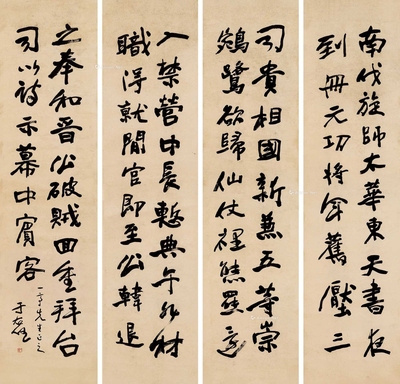 南伐旋師太華東天書夜
到冊元功將軍舊壓三
司貴相國新兼五等崇
鵷鷺欲歸仙仗裡熊羆還
入禁營中長慙典午非材
職得就閒官即至公韓退
之奉和晉公破賊回重拜台
司以詩示幕中賓客
先生正之
于右任